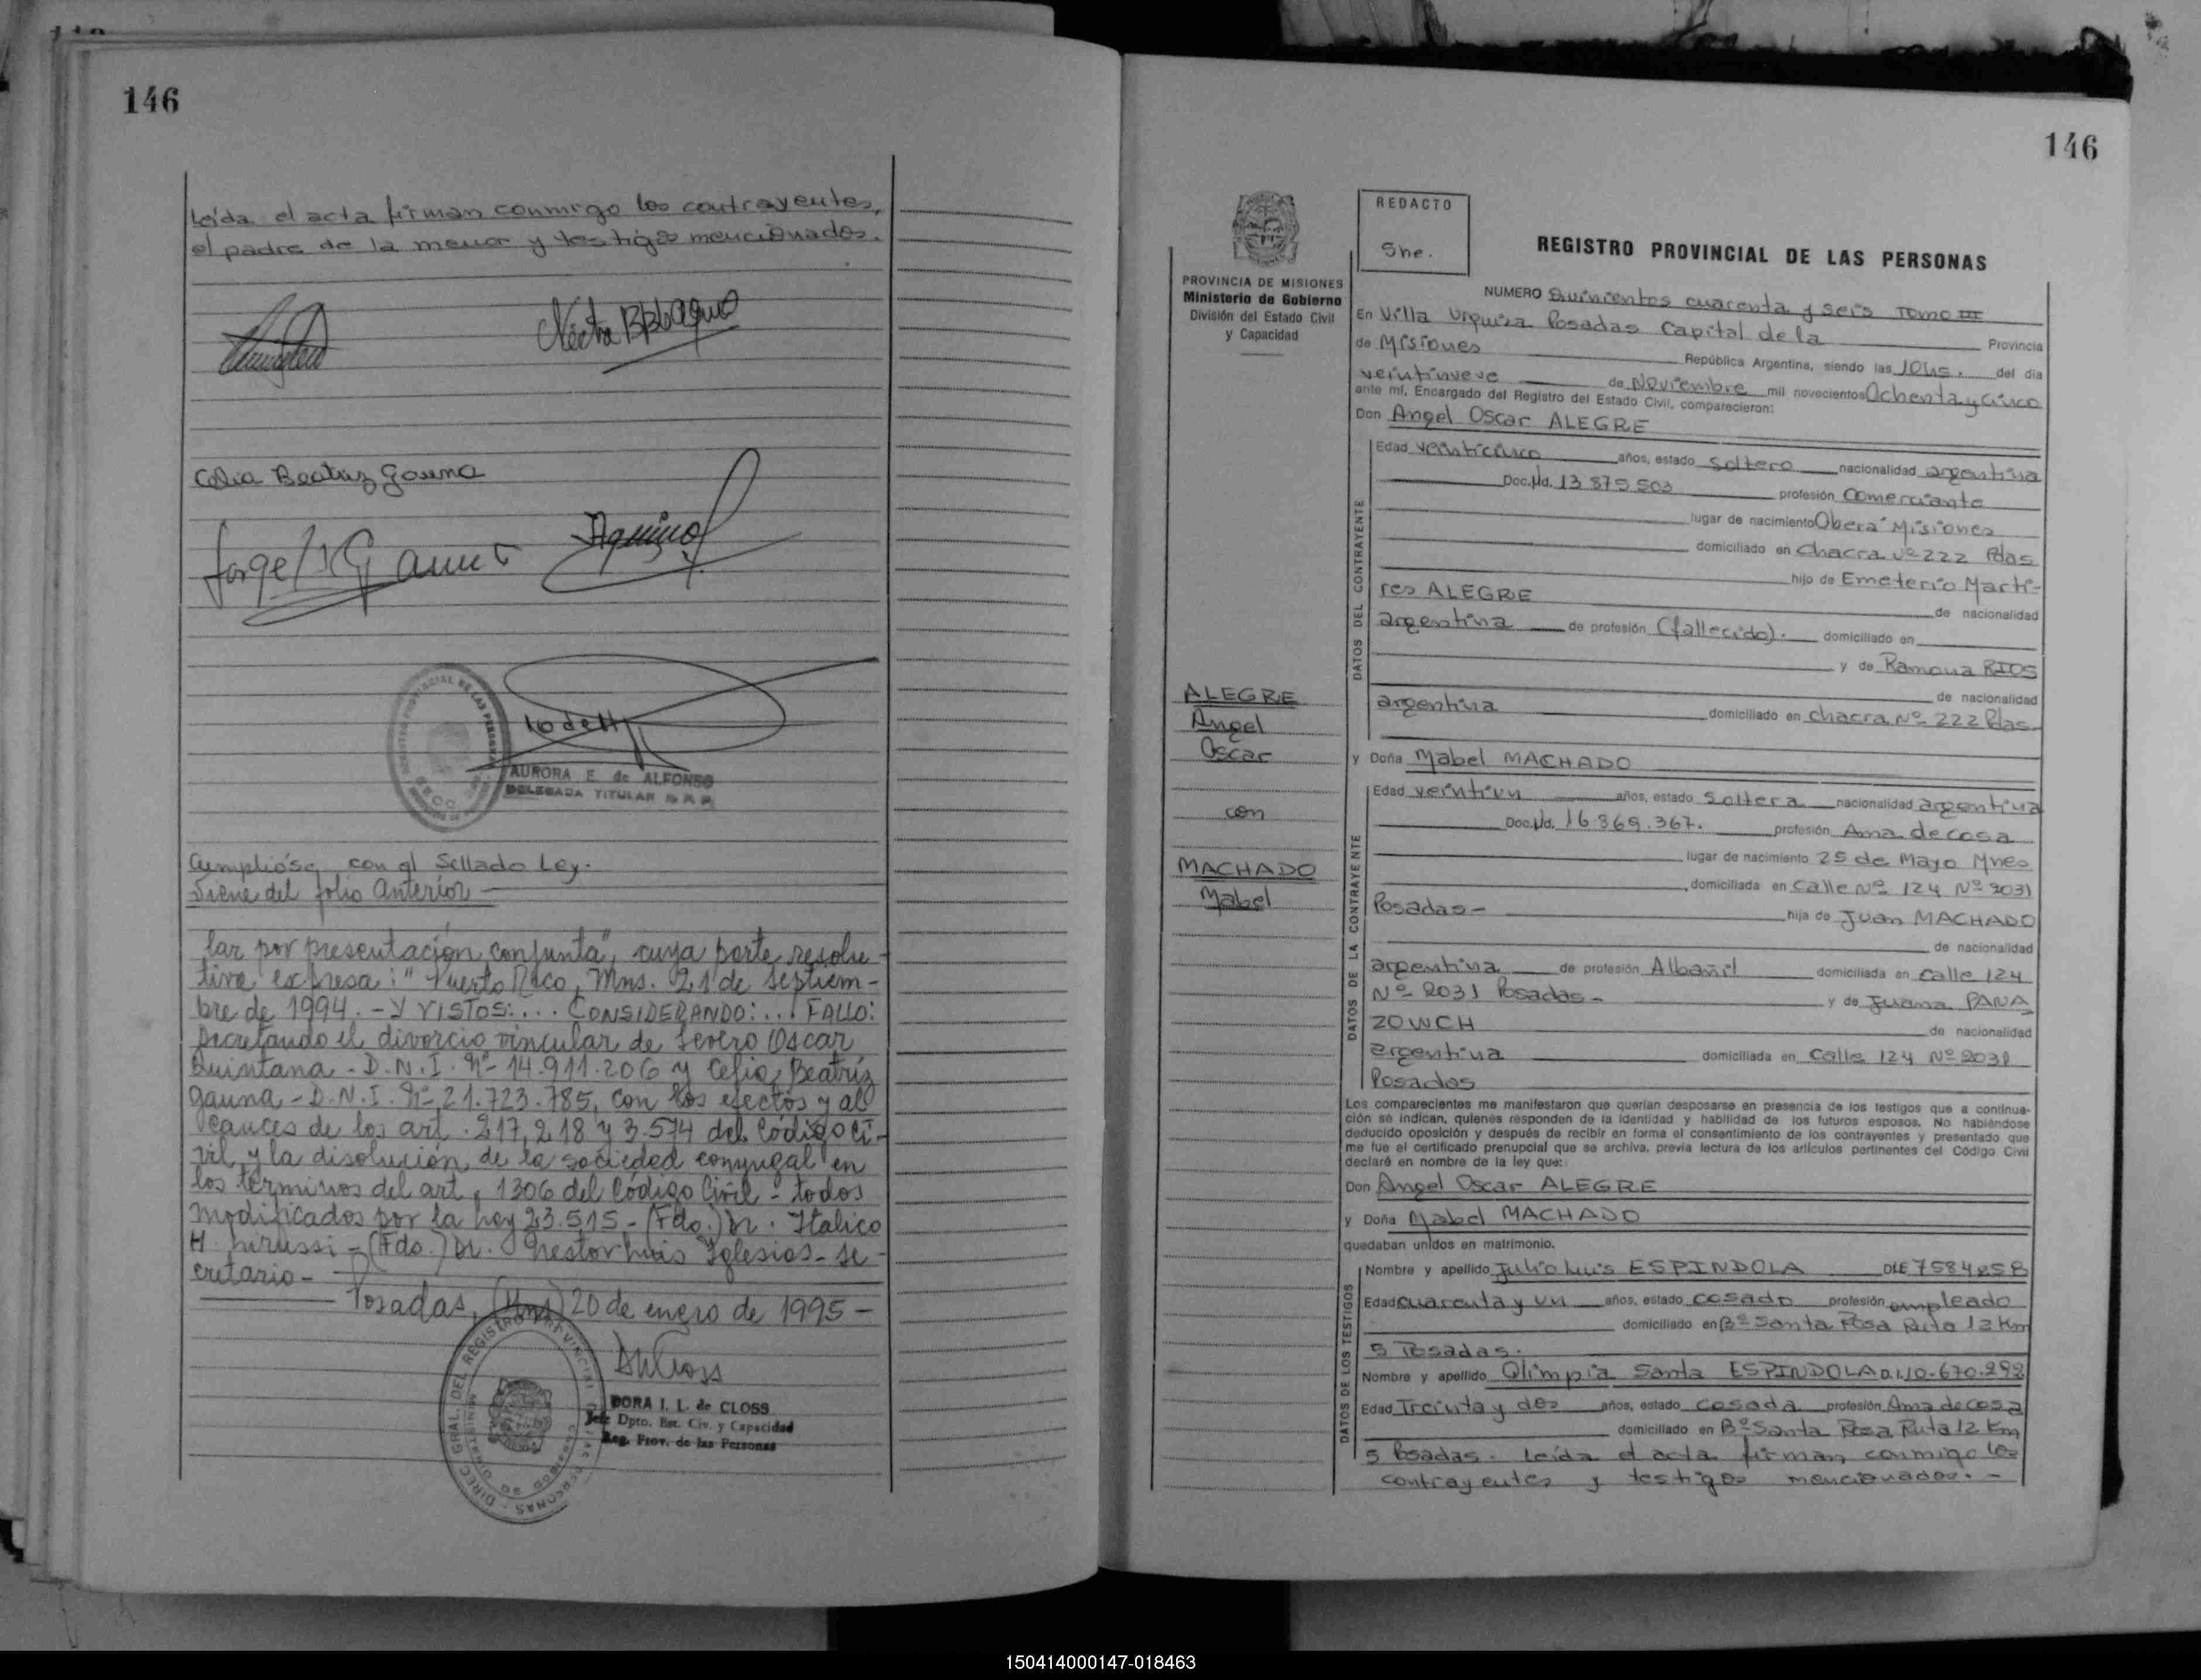 146
Leída el acta firman conmigo los contrayentes,
el padre de la menor y testigos mencionados.
Celia Beatriz Gauna
Aquino
AURORA E. de ALFONSO
DELEGADA TITULAR
Cumplióse con el Sellado Ley.
Viene del folio Anterior
lar por presentación conjunta", cuya parte resolu-
tiva expresa: "Puerto Rico, Mns. 21 de septiem-
bre de 1994. - Y VISTOS:... CONSIDERANDO:... FALLO:
Decretando el divorcio vincular de Severo Oscar
Quintana - D.N.I. Nº 14.911.206 y Celia Beatríz
Gauna - D.N.I. Nº 21.723.785, con los efectos y al
cances de los art. 217, 218 y 3.574 del Código Ci-
vil y la disolución de la sociedad conyugal en
los términos del art. 1306 del Código Civil - todos
modificados por la Ley 23.515 - (Fdo.) Dr. Italico
H. - (Fdo.) Dr. Nestor Luis Iglesias - Se-
cretario -
Posadas, (Mns) 20 de enero de 1995 -
DORA I. L. de CLOSS
Jefe Dpto. Est. Civ. y Capacidad
Reg. Prov. de las Personas
146
REDACTO
She.
REGISTRO PROVINCIAL DE LAS PERSONAS
PROVINCIA DE MISIONES
Ministerio de Gobierno
División del Estado Civil
y Capacidad
ALEGRE
Angel
Oscar
con
MACHADO
Mabel
NUMERO Quinientos cuarenta y seis Tomo III
En Villa Urquiza Posadas Capital de la Provincia
de Misiones República Argentina, siendo las 10hs. del día
veintinueve de Noviembre mil novecientos Ochenta y cinco
ante mí, Encargado del Registro del Estado Civil, comparecieron:
Don Angel Oscar ALEGRE
DATOS DEL CONTRAYENTE
Edad veinticinco años, estado Soltero nacionalidad argentina
Doc.Id. 13 875 503 profesión Comerciante
lugar de nacimiento Obera Misiones
domiciliado en Chacra Nº 222 Pdas
hijo de Emeterio Marti-
res ALEGRE de nacionalidad
argentina de profesión (fallecido). domiciliado en
y de Ramona RIOS
de nacionalidad
argentina domiciliado en chacra Nº 222 Pdas
y Doña Mabel MACHADO
DATOS DE LA CONTRAYENTE
Edad veintiun años, estado Soltera nacionalidad argentina
Doc.Id. 16 869.367. profesión Ama de casa
lugar de nacimiento 25 de Mayo Mnes
domiciliada en Calle Nº 124 Nº 2031
Posadas- hija de Juan MACHADO
de nacionalidad
argentina de profesión Albañil domiciliada en calle 124
Nº 2031 Posadas- y de Juana PANA
ZOWCH de nacionalidad
argentina domiciliada en Calle 124 Nº 2031
Posadas
Los comparecientes me manifestaron que querían desposarse en presencia de los testigos que a continua-
ción se indican, quienes responden de la identidad y habilidad de los futuros esposos. No habiéndose
deducido oposición y después de recibir en forma el consentimiento de los contrayentes y presentado que
me fue el certificado prenupcial que se archiva, previa lectura de los artículos pertinentes del Código Civil
declaré en nombre de la ley que:
Don Angel Oscar ALEGRE
y Doña Mabel MACHADO
quedaban unidos en matrimonio.
DATOS DE LOS TESTIGOS
Nombre y apellido Julio Luis ESPINDOLA DLE 7584258
Edad cuarenta y un años, estado casado profesión empleado
domiciliado en Bº Santa Rosa Ruta 12 Km
5 Posadas.
Nombre y apellido Olimpia Santa ESPINDOLA D.I. 10.670.292
Edad Treinta y dos años, estado casada profesión Ama de casa
domiciliado en Bº Santa Rosa Ruta 12 Km
5 Posadas. Leída el acta firman conmigo los
contrayentes y testigos mencionados. -
150414000147-018463